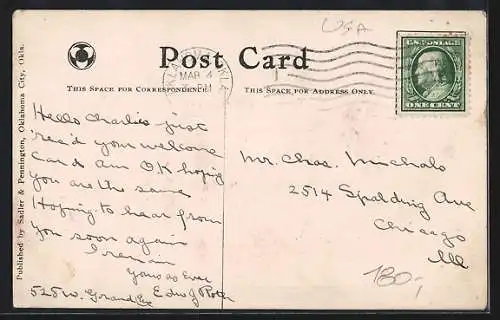 USA
Post Card
THIS SPACE FOR CORRESPONDENCE
THIS SPACE FOR ADDRESS ONLY.
OKLA.
MAR 4
U.S. POSTAGE
ONE CENT
Published by Sadler & Pennington, Oklahoma City, Okla.
Hello Charlies just
rec'd your welcome
card am OK hoping
you are the same
Hoping to hear from
you soon again
I remain
Yours as Ever
Edw J
528 W. Grand Ave
Mr. Chas. Michalo
2514 Spalding Ave
Chicago
Ill
180,-